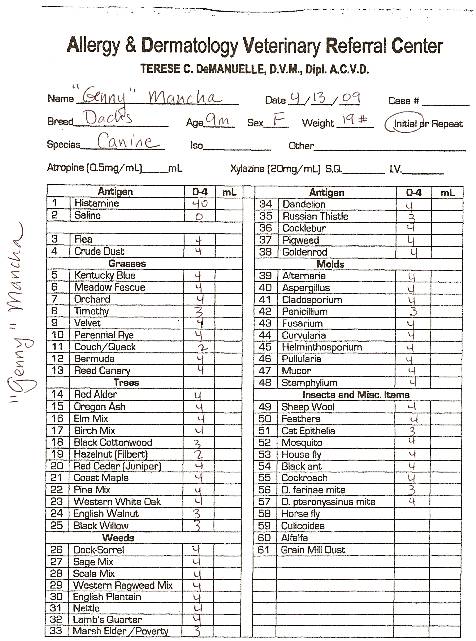 Allergy & Dermatology Veterinary Referral Center
TERESE C. DeMANUELLE, D.V.M., Dipl. A.C.V.D.
Name "Genny" Mancha Date 4/13/09 Case #
Breed Dachs Age 9m Sex F Weight 19# Initial or Repeat
Species Canine Iso Other
Atropine (0.5mg/mL) mL Xylazine (20mg/mL) S.Q. I.V.
"Genny" Mancha
Antigen 0-4 mL
1 Histamine 40
2 Saline 0
3 Flea 4
4 Crude Dust 4
Grasses
5 Kentucky Blue 4
6 Meadow Fescue 4
7 Orchard 4
8 Timothy 3
9 Velvet 4
10 Perennial Rye 4
11 Couch/Quack 2
12 Bermuda 4
13 Reed Canary 4
Trees
14 Red Alder 4
15 Oregon Ash 4
16 Elm Mix 4
17 Birch Mix 4
18 Black Cottonwood 3
19 Hazelnut (Filbert) 2
20 Red Cedar (Juniper) 4
21 Coast Maple 4
22 Pine Mix 4
23 Western White Oak 4
24 English Walnut 3
25 Black Willow 3
Weeds
26 Dock-Sorrel 4
27 Sage Mix 4
28 Scale Mix 4
29 Western Ragweed Mix 4
30 English Plantain 4
31 Nettle 4
32 Lamb's Quarter 4
33 Marsh Elder /Poverty 3
Antigen 0-4 mL
34 Dandelion 4
35 Russian Thistle 3
36 Cocklebur 4
37 Pigweed 4
38 Goldenrod 4
Molds
39 Alternaria 4
40 Aspergillus 4
41 Cladosporium 4
42 Penicillum 3
43 Fusarium 4
44 Curvularia 4
45 Helminthosporium 4
46 Pullularia 4
47 Mucor 4
48 Stemphylium 4
Insects and Misc. Items
49 Sheep Wool 4
50 Feathers 4
51 Cat Epithelia 3
52 Mosquito 4
53 House fly 4
54 Black ant 4
55 Cockroach 4
56 D. farinae mite 3
57 D. pteronyssinus mite 4
58 Horse fly
59 Culicoides
60 Alfalfa
61 Grain Mill Dust